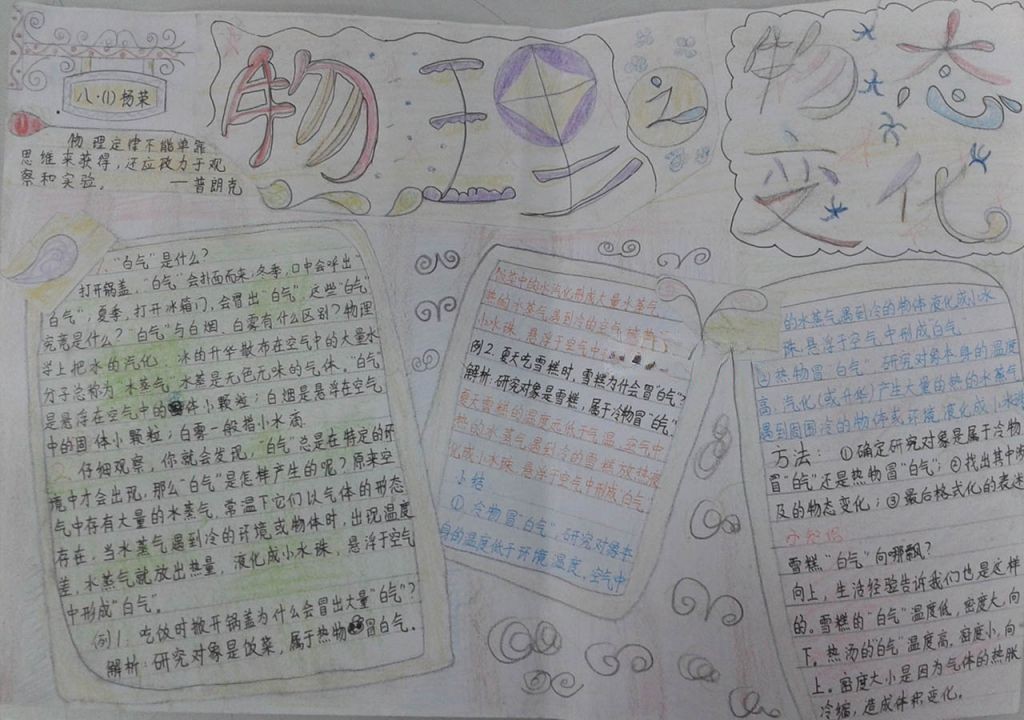 八·(1) 杨荣
物理定律不能单靠
思维来获得,还应致力于观
察和实验。
——普朗克
物理之
物态
变化
1、"白气"是什么?
打开锅盖,"白气"会扑面而来,冬季,口中会呼出"
白气",夏季,打开冰箱门,会冒出"白气"。这些"白气"
究竟是什么?"白气"与白烟、白雾有什么区别?物理
学上把水的汽化、冰的升华散布在空气中的大量水
分子总称为水蒸气,水蒸气是无色无味的气体。"白气"
是悬浮在空气中的体小颗粒;白烟是悬浮在空气
中的固体小颗粒;白雾一般指小水滴
2、仔细观察,你就会发现,"白气"总是在特定的环
境中才会出现,那么"白气"是怎样产生的呢?原来空
气中存有大量的水蒸气,常温下它们以气体的形态
存在.当水蒸气遇到冷的环境或物体时,出现温度
差,水蒸气就放出热量,液化成小水珠,悬浮于空气
中形成"白气"。
例1、吃饭时掀开锅盖为什么会冒出大量"白气"?
解析:研究对象是饭菜,属于热物冒白气.
饭菜中的水汽化形成大量水蒸气,
热的水蒸气遇到冷的空气
小水珠,悬浮于空气中
例2.夏天吃雪糕时,雪糕为什么会冒"白气"?
解析:研究对象是雪糕,属于冷物冒"白气"。
夏天雪糕的温度远低于气温,空气中
热的水蒸气遇到冷的雪糕放热液
化成小水珠,悬浮于空气中形成"白气"
小结
①、冷物冒"白气",研究对象本
身的温度低于环境温度,空气中
的水蒸气遇到冷的物体液化成小水
珠,悬浮于空气中形成白气
②热物冒"白气"研究对象本身的温度
高,汽化(或升华)产生大量的热的水蒸气
遇到周围冷的物体或环境,液化成小水珠
方法:①确定研究对象是属于冷物
冒"白气"还是热物冒"白气";②找出其中涉
及的物态变化;③最后格式化的表述
雪糕"白气"向哪飘?
向上,生活经验告诉我们也是这样
的。雪糕的"白气"温度低,密度大,向
下。热汤的"白气"温度高,密度小,向
上。密度大小是因为气体的热胀
冷缩,造成体积变化。